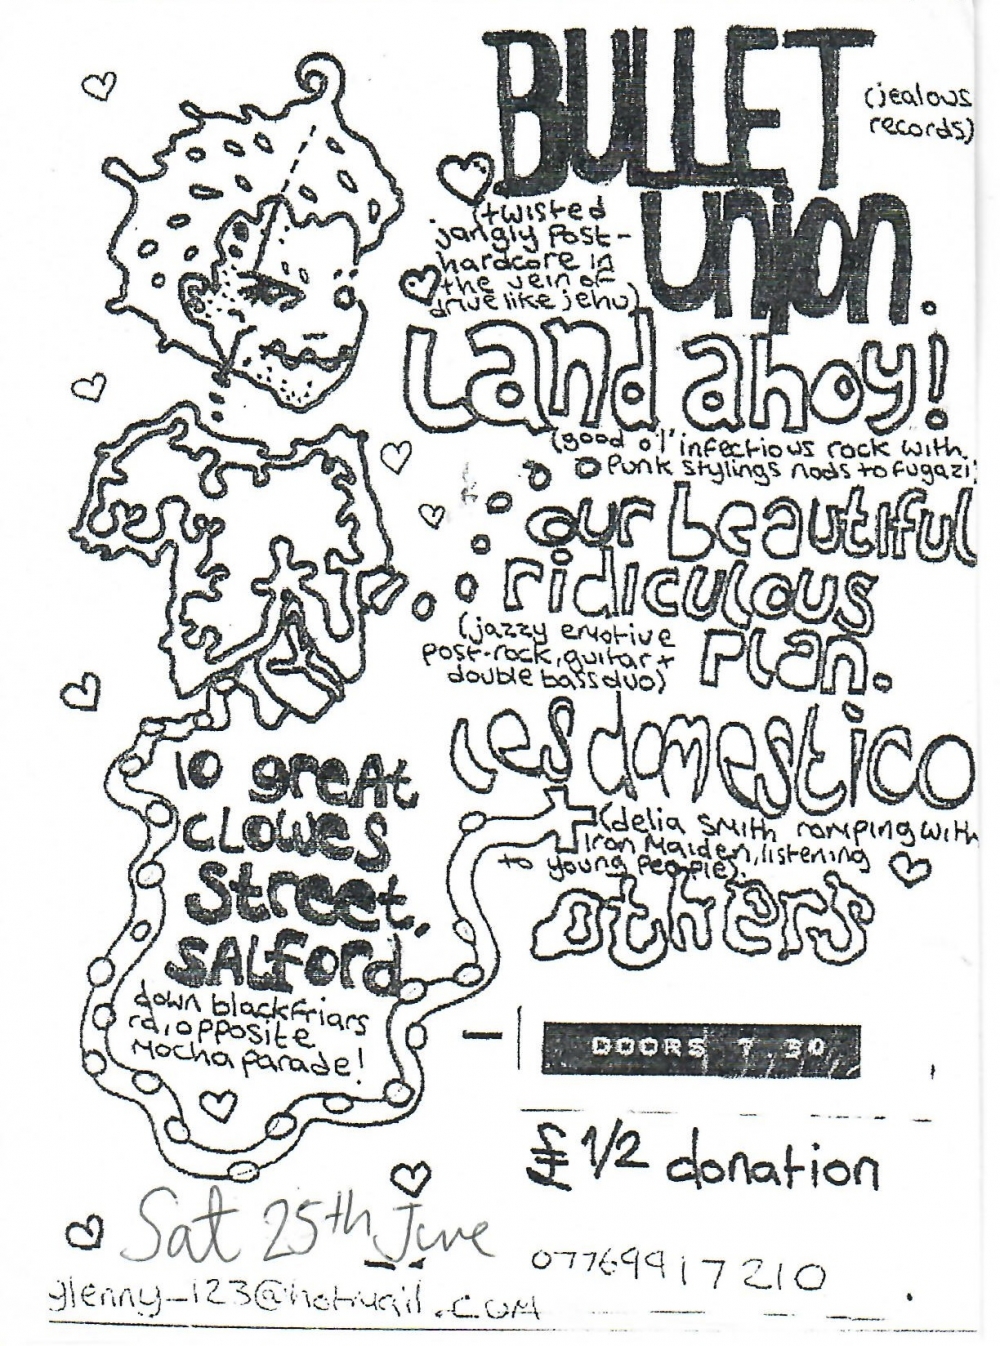 BULLET
(jealous
records)
union.
(twisted
jangly post-
hardcore in
the vein of
drive like jehu)
Land ahoy!
(good o'l' infectious rock with
Punk stylings nods to fugazi)
our beautiful
ridiculous
Plan.
(jazzy emotive
post-rock, guitar +
double bass duo)
Les domestico
(delia smith romping with
Iron Maiden, listening
to young people).
others
10 great
clowes
Street,
SALFord
down blackfriars
rd, opposite
Mocha parade!
DOORS 7.30
£1/2 donation
Sat 25th June
07769917210
glenny_123@hotmail.com